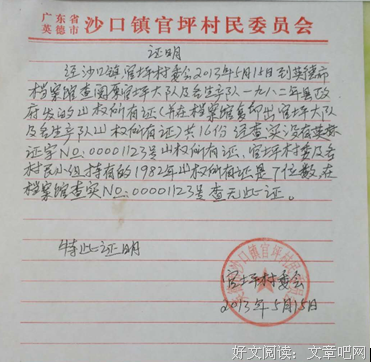 广东省
英德市 沙口镇官坪村民委员会
证明
经沙口镇官坪村委会2013年5月15日到英德市
档案馆查阅原官坪大队及各生产队一九八二年县政
府发的山权所有证(并在档案馆复印出官坪大队
及各生产队山权所有证)共16份经查实没有英
证字NO:00001123号山权所有证、官坪村委及各
村民小组持有的1982年山权所有证是7位数在
档案馆查实NO:00001123号查无此证。
特此证明
官坪村委会
2013年5月15日
沙口镇官坪村民委员会
好文阅读:文章吧网